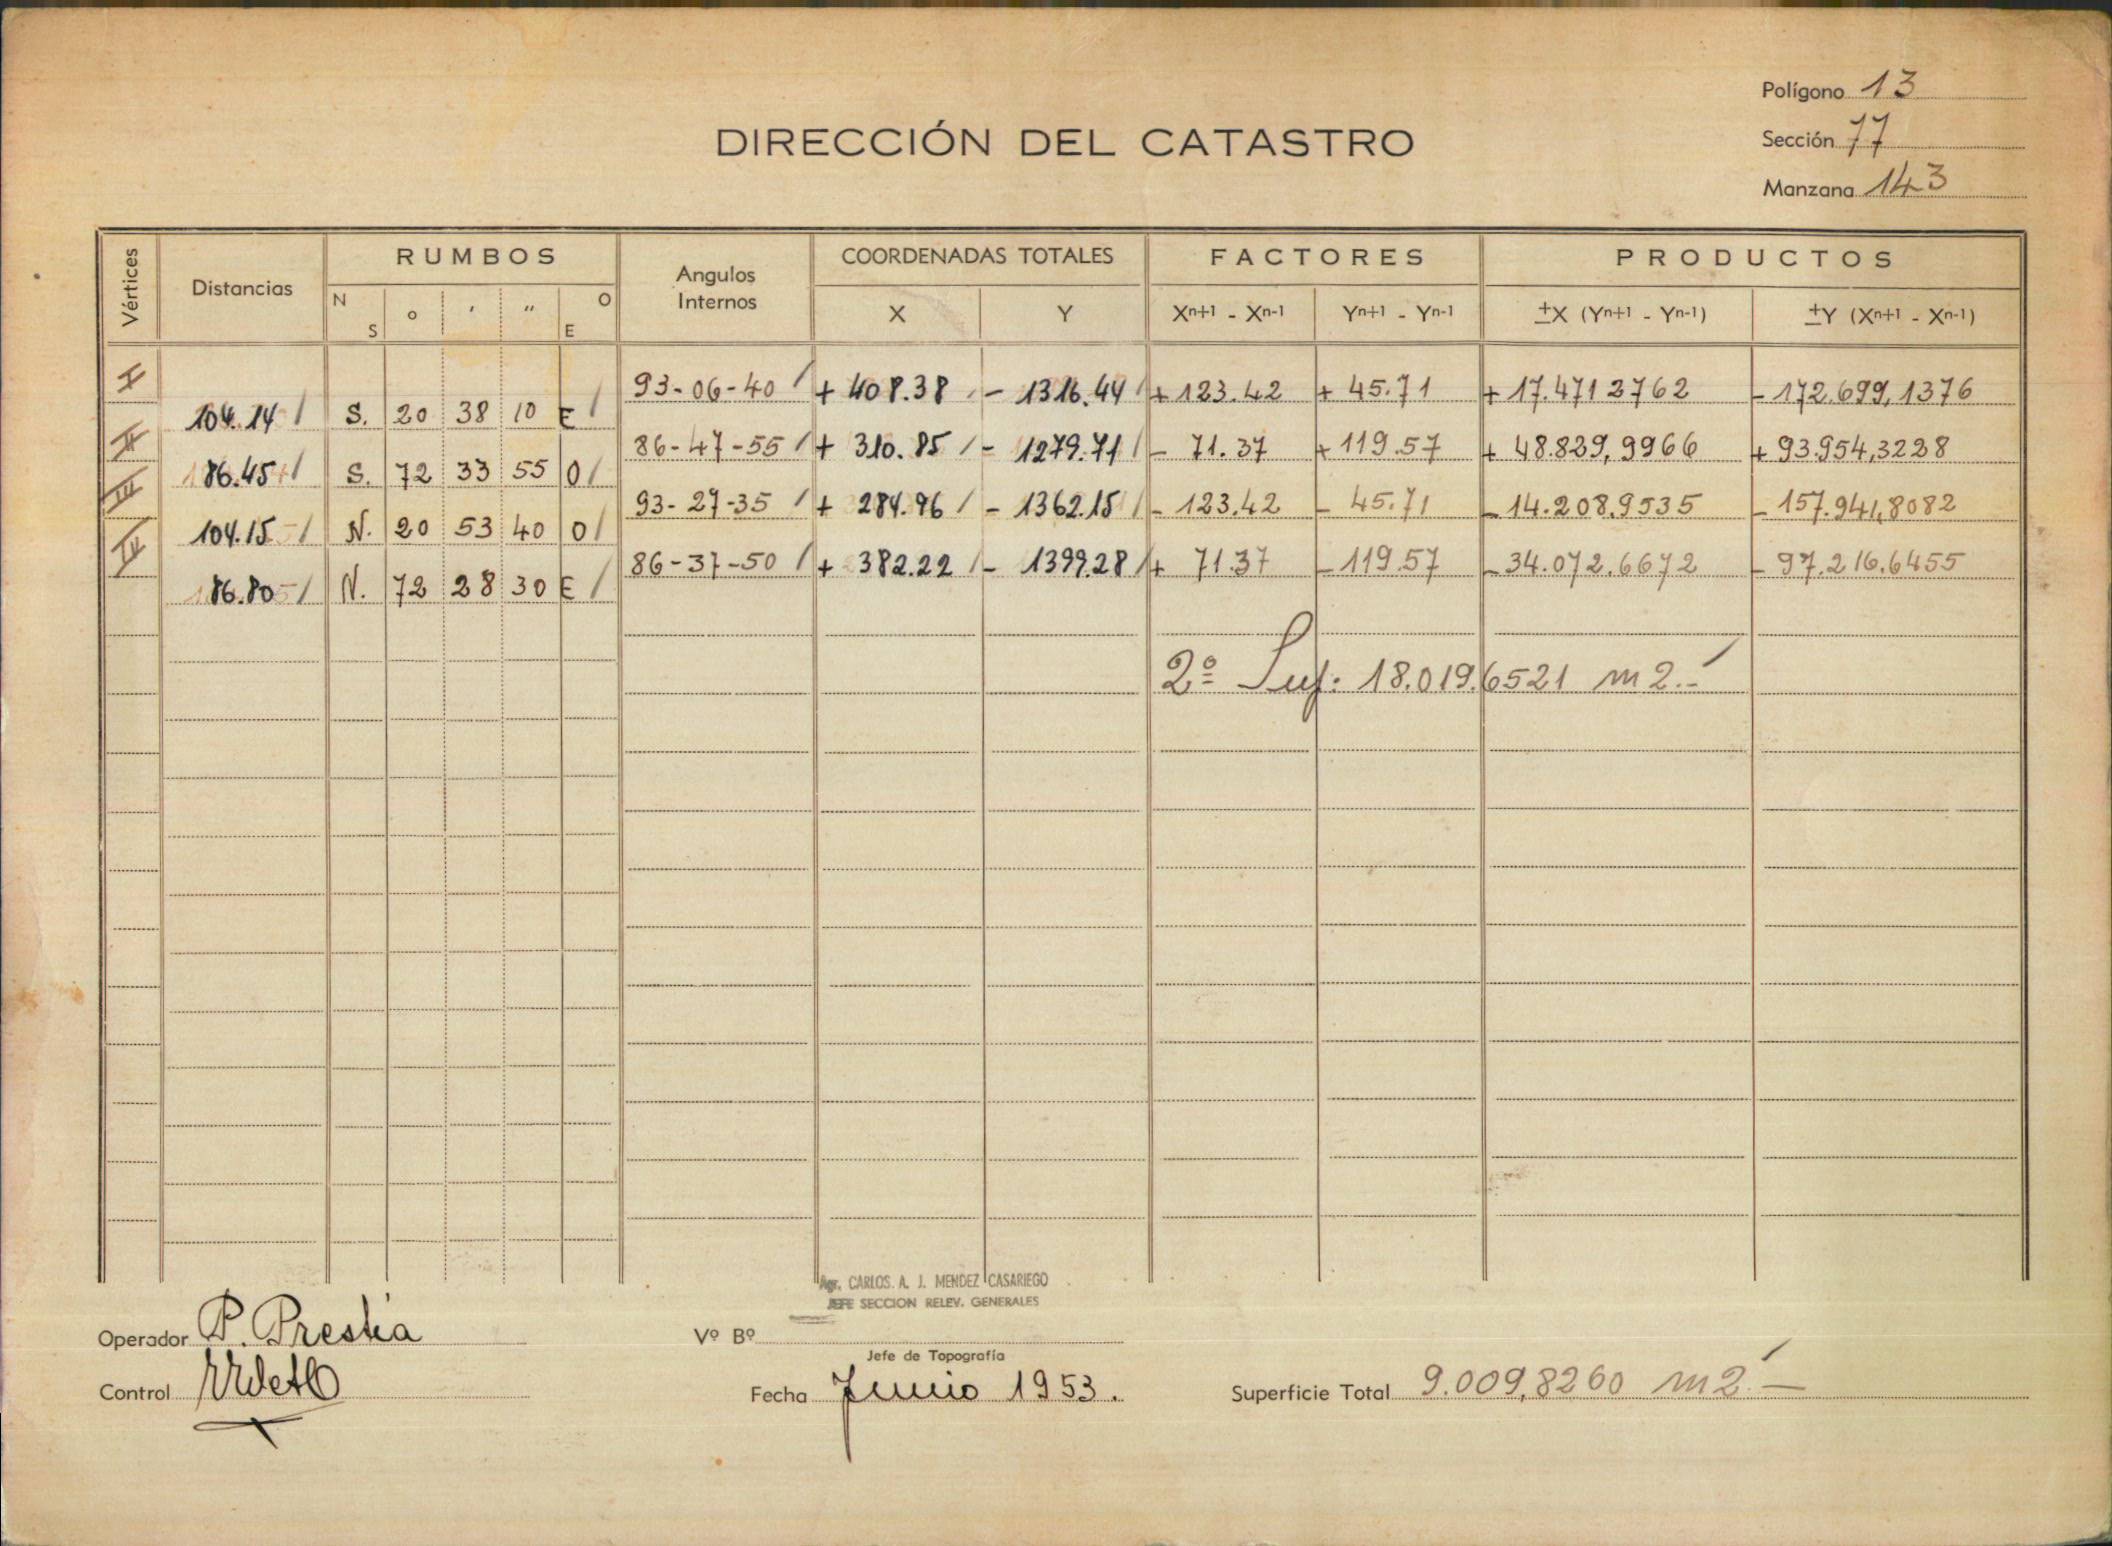 Polígono 13
DIRECCIÓN DEL CATASTRO
Sección 77
Manzana 143
Vértices Distancias RUMBOS Angulos Internos COORDENADAS TOTALES FACTORES PRODUCTOS
N S ° ' " O E X Y Xn+1 - Xn-1 Yn+1 - Yn-1 ±X (Yn+1 - Yn-1) ±Y (Xn+1 - Xn-1)
I 93-06-40 / + 408.38 / - 1316.44 / + 123.42 + 45.71 + 17.471 2762 - 172.699,1376
104.14 / S. 20 38 10 E /
II 86-47-55 / + 310.85 / - 1279.71 / - 71.37 + 119.57 + 48.829,9966 + 93.954,3228
86.45 / S. 72 33 55 O /
III 93-27-35 / + 284.96 / - 1362.15 / - 123.42 - 45.71 - 14.208.9535 - 157.941,8082
104.15 / N. 20 53 40 O /
IV 86-37-50 / + 382.22 / - 1399.28 / + 71.37 - 119.57 - 34.072.6672 - 97.216.6455
86.80 / N. 72 28 30 E /
2º Sup: 18.019.6521 m2.-
Agr. CARLOS. A. J. MENDEZ CASARIEGO
JEFE SECCION RELEV. GENERALES
Operador P. Prestia Vº Bº
Jefe de Topografía
Control Fecha Junio 1953. Superficie Total 9.009,8260 m2.-